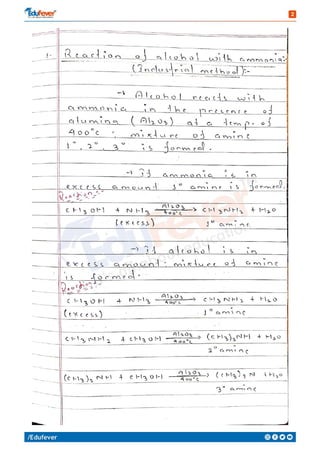 Edufever
2
1- Reaction of alcohol with ammonia:-
(Industrial method):-
→ Alcohol reacts with
ammonia in the presence of
alumina (Al2O3) at a temp. of
400°c : mixture of amine
1°, 2°, 3° is formed.
→ if ammonia is in
excess amount 1° amine is formed.
Reaction:-
CH3OH + NH3 Al2O3 400°c → CH3NH2 + H2O
(excess) 1° amine
→ if alcohol is in
excess amount: mixture of amine
is formed.
Reaction:-
CH3OH + NH3 Al2O3 400°c → CH3NH2 + H2O
(excess) 1° amine
CH3NH2 + CH3OH Al2O3 400°c → (CH3)2NH + H2O
2° amine
(CH3)2NH + CH3OH Al2O3 400°c → (CH3)3N + H2O
3° amine
/Edufever